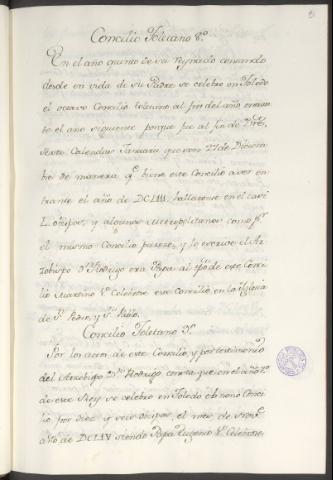 Concilio Toletano 8º
En el año quinto de su Reynado contando
desde en vida de su Padre se celebro en Toledo
el octavo Concilio toletano al fin del año
te el año siguiente porque fue al fin de Dre,
Sexta Calendas Januarii que son 27 de Diciem
bre de manera q.e bino este Concilio a ser en
trante el año de DCLIII, hallaronse en el casi
L. obispos, y algunos Metropolitanos como p.r
el mismo Concilio parece, y lo escrive el Ar
zobispo D.n Rodrigo era Papa al tpo de este Conci
lio Martino 1º Celebrose este Concilio en la Iglesia
de S.n Pedro, y S.n Pablo.
Concilio Toletano 9º
Por los actos de este Concilio, y por testimonio
del Arzobispo D.n Rodrigo consta que en el año 7º
de este Rey se celebro en Toledo el nono Conci
lio por diez y seis obispos, el mes de Nov.e
año de DCLIV siendo Papa Eugenio 1º Celebrose